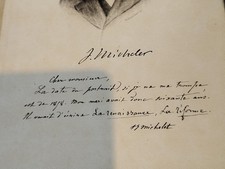 J. Michelet
Cher monsieur,
La date du portrait, si je ne me trompe
est de 1858. Mon mari avait donc soixante ans.
Il venait d'écrire La renaissance, La réforme.
J Michelet